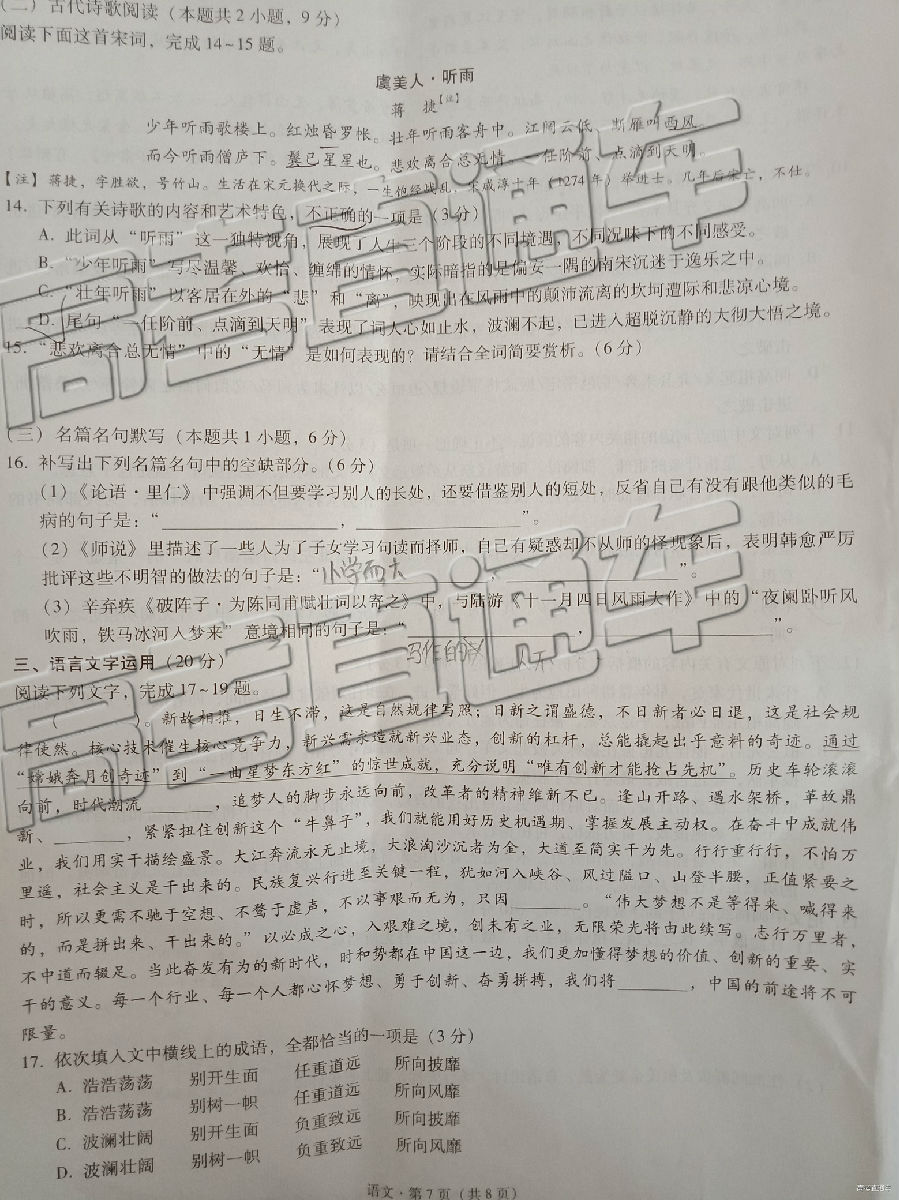 (二) 古代诗歌阅读 (本题共2小题, 9分)
阅读下面这首宋词, 完成14~15题。
虞美人·听雨
蒋 捷【注】
少年听雨歌楼上。红烛昏罗帐。壮年听雨客舟中。江阔云低、断雁叫西风。
而今听雨僧庐下。鬓已星星也。悲欢离合总无情。一任阶前、点滴到天明。
【注】蒋捷, 字胜欲, 号竹山。生活在宋元换代之际, 一生饱经战乱, 宋咸淳十年(1274年)举进士。几年后宋亡, 不仕。
14. 下列有关诗歌的内容和艺术特色, 不正确的一项是(3分)
A. 此词从“听雨”这一独特视角, 展现了人生三个阶段的不同境遇、不同况味下的不同感受。
B. “少年听雨”写尽温馨、欢恰、缠绵的情怀, 实际暗指的是偏安一隅的南宋沉迷于逸乐之中。
C. “壮年听雨”以客居在外的“悲”和“离”, 映现出在风雨中的颠沛流离的坎坷遭际和悲凉心境。
D. 尾句“一任阶前、点滴到天明”表现了词人心如止水, 波澜不起, 已进入超脱沉静的大彻大悟之境。
15. “悲欢离合总无情”中的“无情”是如何表现的? 请结合全词简要赏析。(6分)
(三) 名篇名句默写 (本题共1小题, 6分)
16. 补写出下列名篇名句中的空缺部分。(6分)
(1)《论语·里仁》中强调不但要学习别人的长处, 还要借鉴别人的短处, 反省自己有没有跟他类似的毛
病的句子是: “____________, ____________”。
(2)《师说》里描述了一些人为了子女学习句读而择师, 自己有疑惑却不从师的怪现象后, 表明韩愈严厉
批评这些不明智的做法的句子是: “小学而大, ____________”。
(3) 辛弃疾《破阵子·为陈同甫赋壮词以寄之》中, 与陆游《十一月四日风雨大作》中的“夜阑卧听风
吹雨, 铁马冰河入梦来”意境相同的句子是: “____________, ____________”。
三、语言文字运用(20分)
阅读下列文字, 完成17~19题。
(________)。新故相推, 日生不滞, 这是自然规律写照; 日新之谓盛德, 不日新者必日退, 这是社会规
律使然。核心技术催生核心竞争力, 新兴需求造就新兴业态, 创新的杠杆, 总能撬起出乎意料的奇迹。通过
“嫦娥奔月创奇迹”到“一曲星梦东方红”的惊世成就, 充分说明“唯有创新才能抢占先机”。历史车轮滚滚
向前, 时代潮流________, 追梦人的脚步永远向前, 改革者的精神维新不已。逢山开路、遇水架桥, 革故鼎
新、________, 紧紧扭住创新这个“牛鼻子”, 我们就能用好历史机遇期、掌握发展主动权。在奋斗中成就伟
业, 我们用实干描绘盛景。大江奔流永无止境, 大浪淘沙沉者为金, 大道至简实干为先。行行重行行, 不怕万
里遥, 社会主义是干出来的。民族复兴行进至关键一程, 犹如河入峡谷、风过隘口、山登半腰, 正值紧要之
时, 所以更需不驰于空想、不骛于虚声, 不以事艰而无为, 只因________。“伟大梦想不是等得来、喊得来
的, 而是拼出来、干出来的。”以必成之心, 入艰难之境, 创未有之业, 无限荣光将由此续写。志行万里者,
不中道而辍足。当此奋发有为的新时代, 时和势都在中国这一边, 我们更加懂得梦想的价值、创新的重要、实
干的意义。每一个行业、每一个人都心怀梦想、勇于创新、奋勇拼搏, 我们将________, 中国的前途将不可
限量。
17. 依次填入文中横线上的成语, 全都恰当的一项是(3分)
A. 浩浩荡荡 别开生面 任重道远 所向披靡
B. 浩浩荡荡 别树一帜 任重道远 所向风靡
C. 波澜壮阔 别开生面 负重致远 所向披靡
D. 波澜壮阔 别树一帜 负重致远 所向风靡
语文·第7页(共8页)
高考直通车
高考直通车
高考直通车